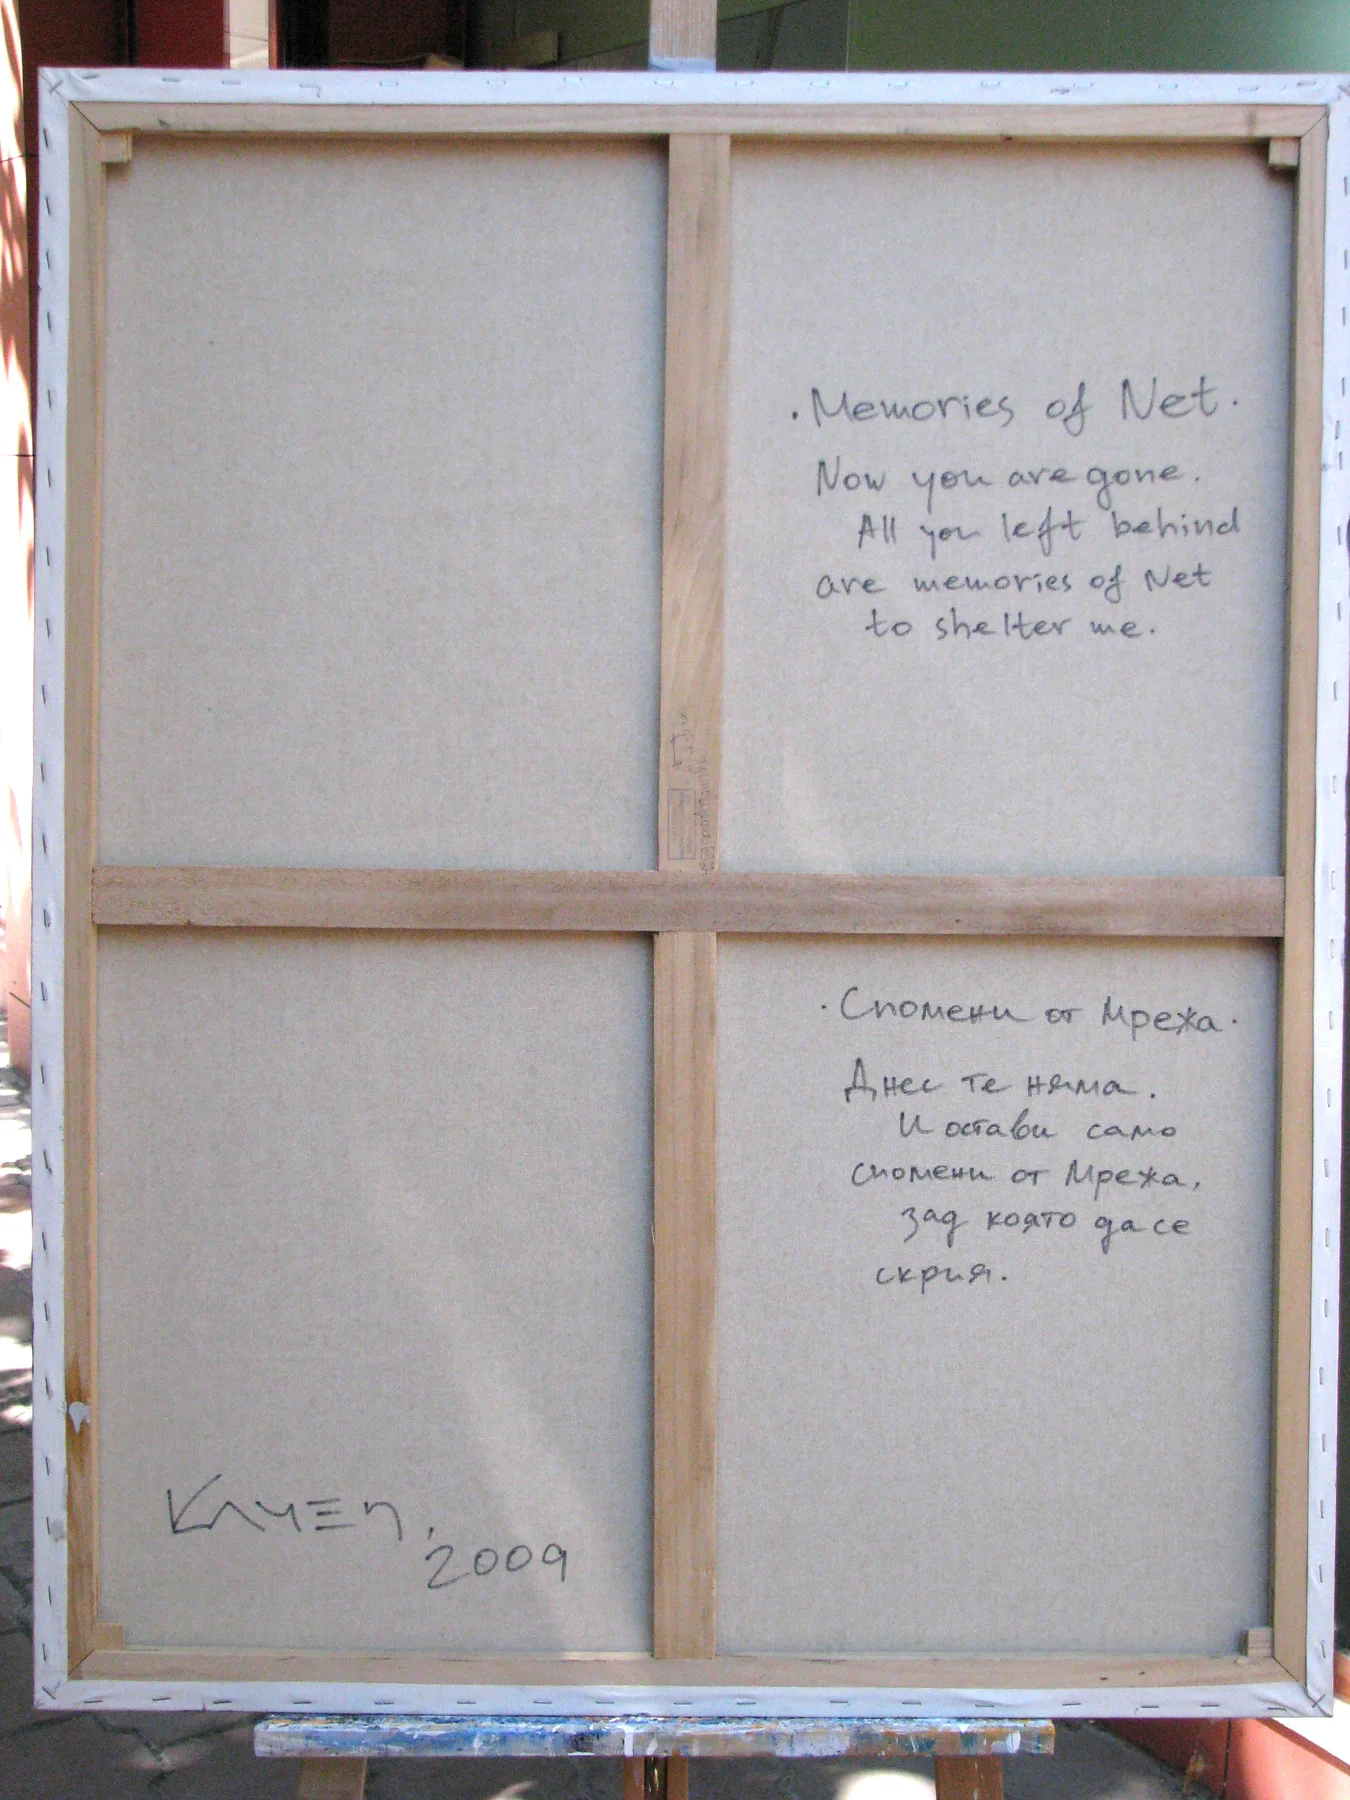 ·Memories of Net·
Now you are gone.
All you left behind
are memories of Net
to shelter me.
·Спомени от Мрежа·
Днес те няма.
И остави само
спомени от Мрежа,
зад която да се
скрия.
2009